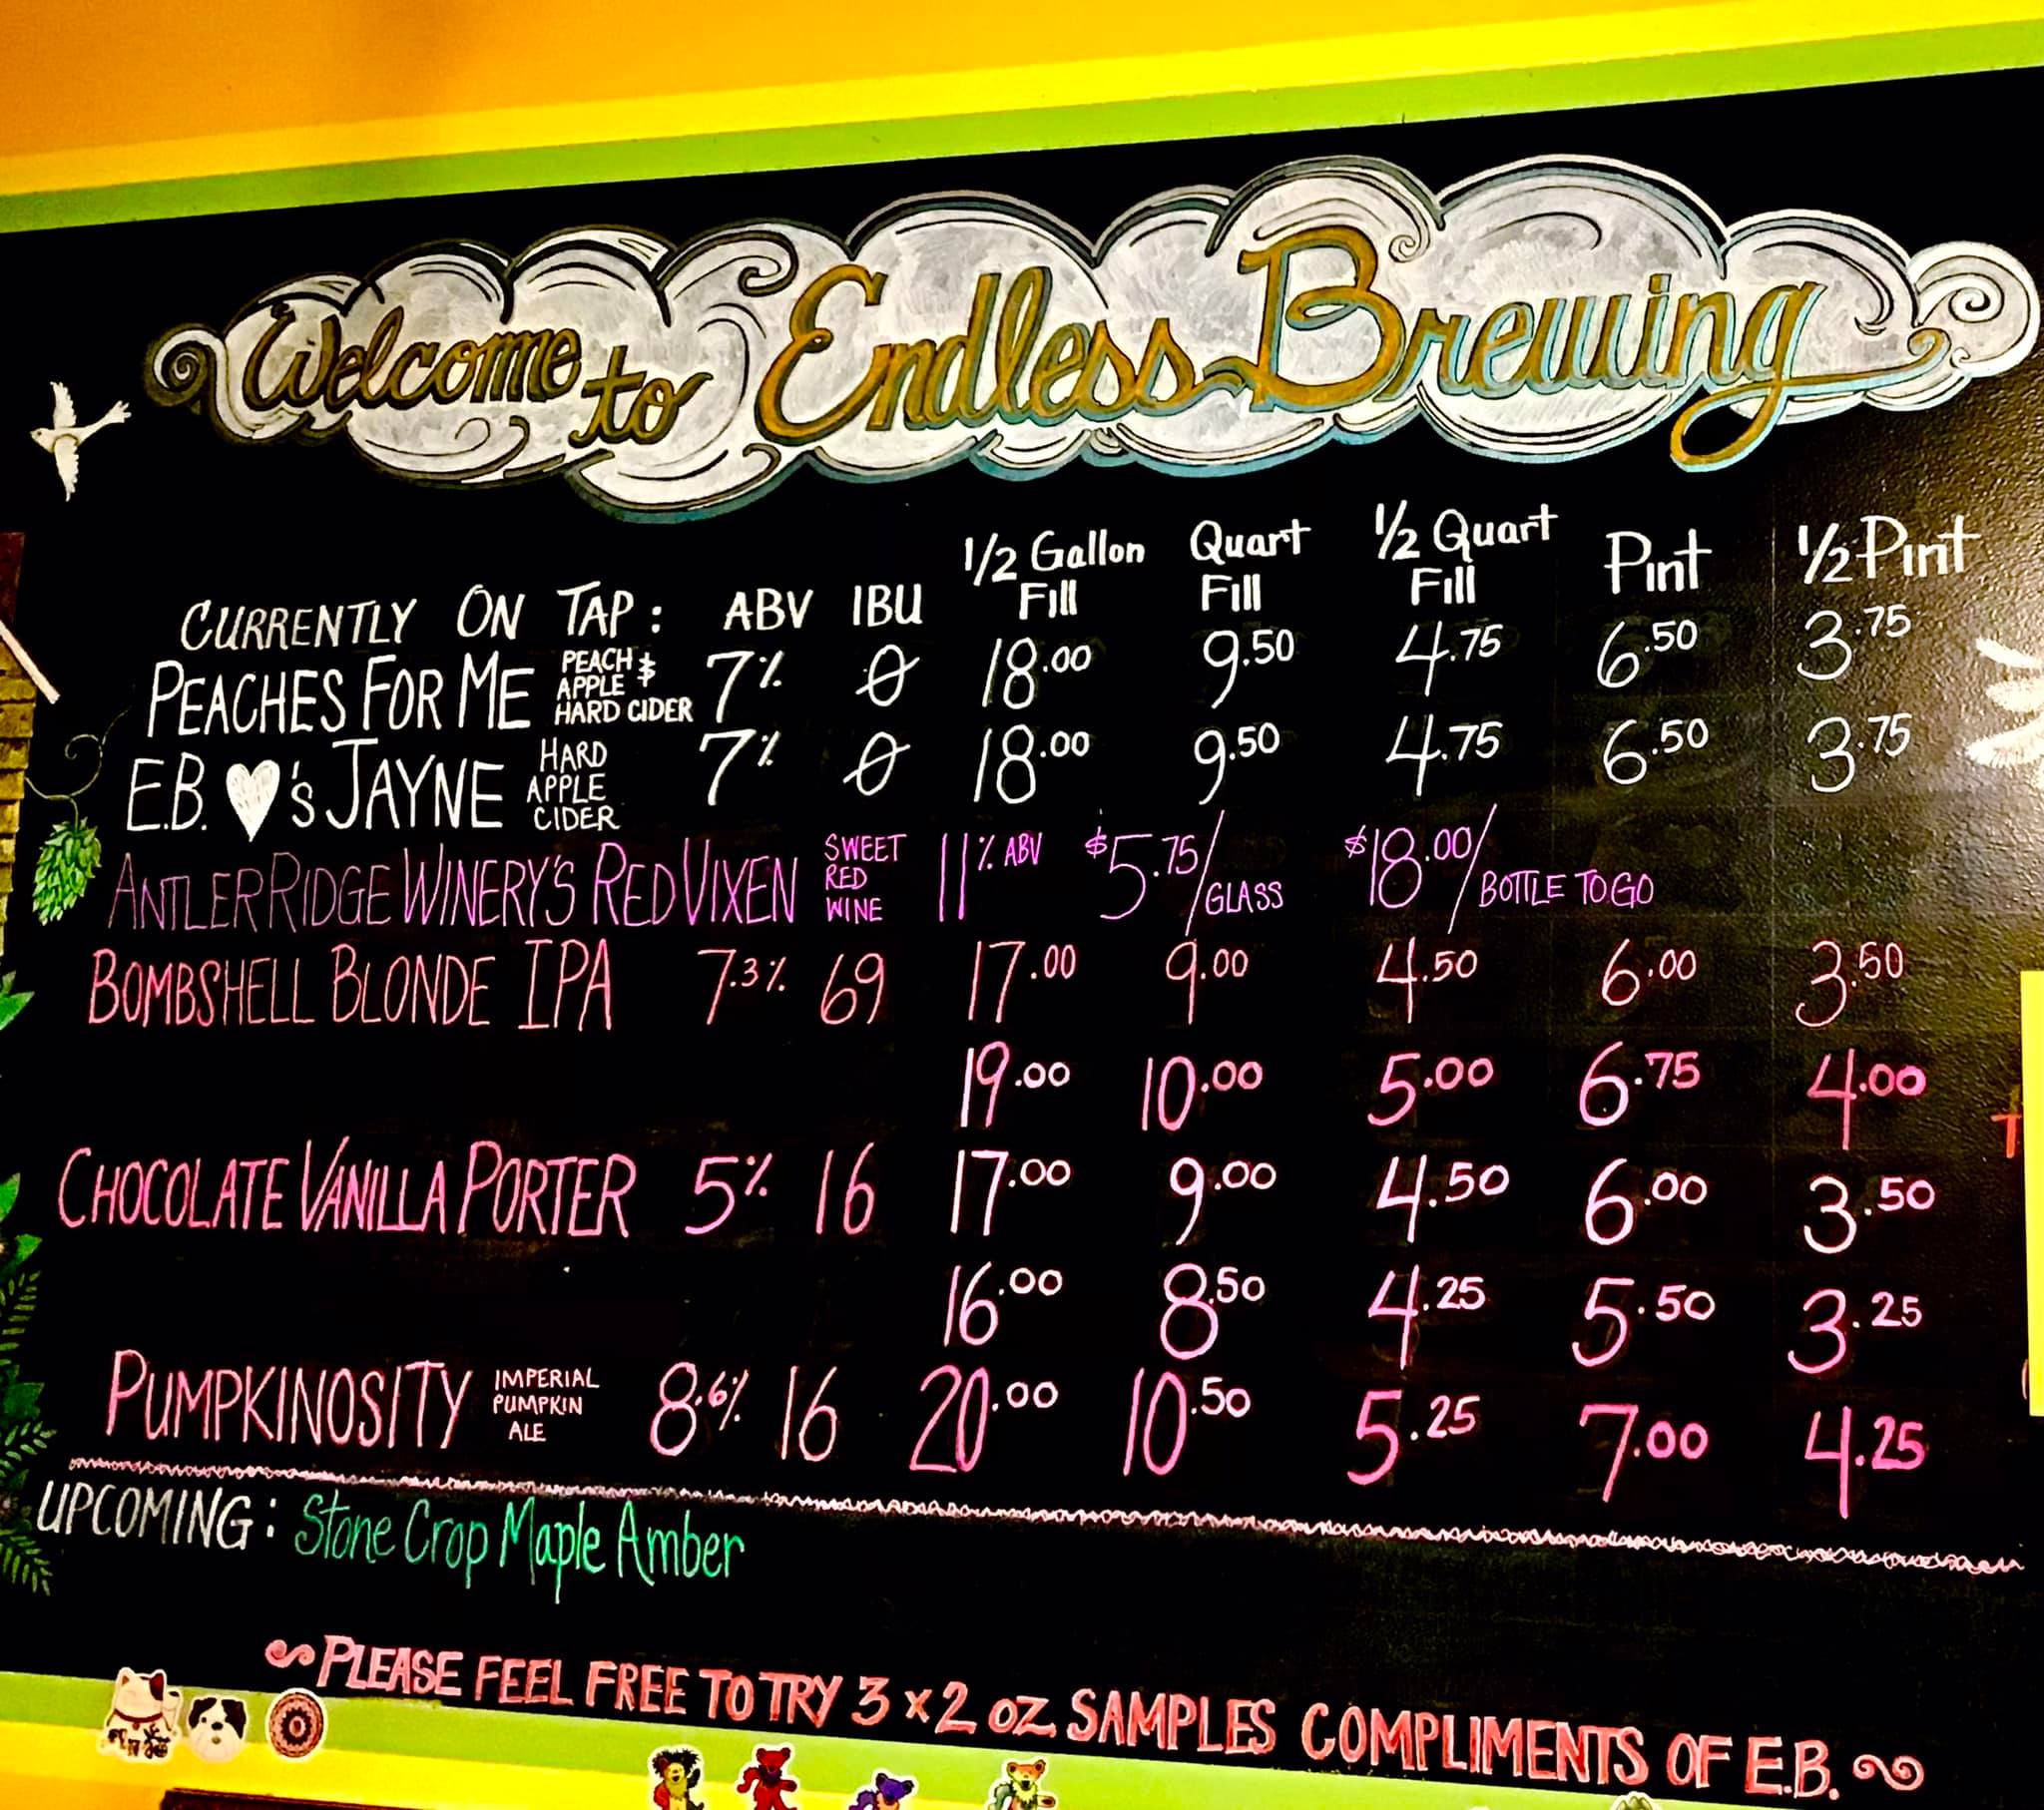 Welcome to Endless Brewing
CURRENTLY ON TAP: ABV IBU 1/2 Gallon Fill Quart Fill 1/2 Quart Fill Pint 1/2 Pint
PEACHES FOR ME PEACH & APPLE HARD CIDER 7% 0 18.00 9.50 4.75 6.50 3.75
E.B. ♥'s JAYNE HARD APPLE CIDER 7% 0 18.00 9.50 4.75 6.50 3.75
ANTLER RIDGE WINERY'S RED VIXEN SWEET RED WINE 11% ABV $5.75/GLASS $18.00/BOTTLE TO GO
BOMBSHELL BLONDE IPA 7.3% 69 17.00 9.00 4.50 6.00 3.50
19.00 10.00 5.00 6.75 4.00
CHOCOLATE VANILLA PORTER 5% 16 17.00 9.00 4.50 6.00 3.50
16.00 8.50 4.25 5.50 3.25
PUMPKINOSITY IMPERIAL PUMPKIN ALE 8.6% 16 20.00 10.50 5.25 7.00 4.25
UPCOMING: Stone Crop Maple Amber
PLEASE FEEL FREE TO TRY 3 x 2 oz SAMPLES COMPLIMENTS OF E.B.